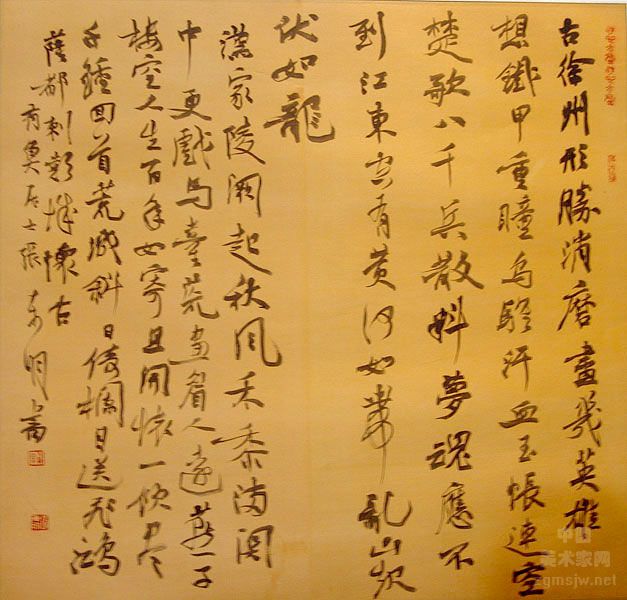 古徐州形勝消磨盡幾英雄
想鐵甲重瞳烏騅汗血玉帳連空
楚歌八千兵散料夢魂應不
到江東空有黄河如帶亂山起
伏如龍
漢家陵闕起秋風禾黍滿関
中更戲馬臺荒畫眉人遠燕子
樓空人生百年如寄且開懷一飲盡
千鍾回首荒城斜日倚欄目送飛鴻
薩都剌彭城懷古
有居士張東明書
中国
美术家网
zgmsjw.net